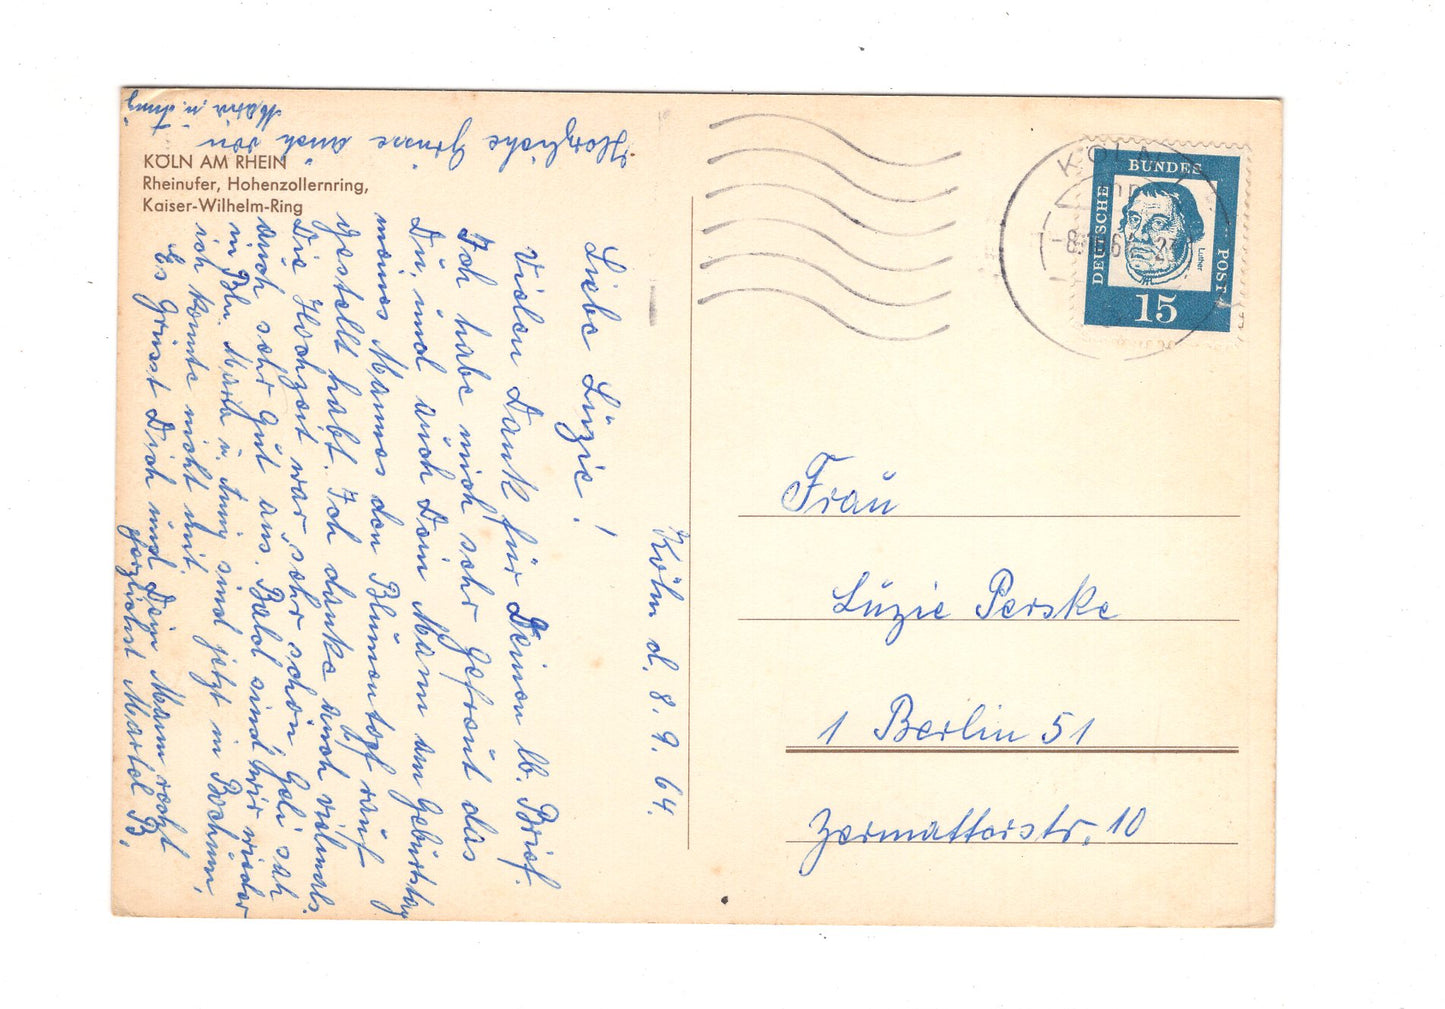 KÖLN AM RHEIN
Rheinufer, Hohenzollernring,
Kaiser-Wilhelm-Ring
Köln d. 8. 9. 64.
Liebe Lüzie!
Vielen Dank für Deinen lb. Brief.
Ich habe mich sehr gefreut das
Du, und auch Dein Mann am Geburtstag
meines Mannes den Blumentopf rauf
gestellt habt. Ich danke auch vielmals.
Die Hochzeit war sehr schön, Geli sah
auch sehr gut aus. Bald sind wir wieder
in Bln. Maria u. Anni sind jetzt in Bochum,
ich konnte nicht mit.
Es Grüsst Dich und Dein Mann recht
herzlichst Martel B.
Herzliche Grüsse auch von
Maria u. Anni
DEUTSCHE BUNDESPOST
Luther
15
KÖLN
Frau
Lüzie Perske
1 Berlin 51
Zermatterstr. 10